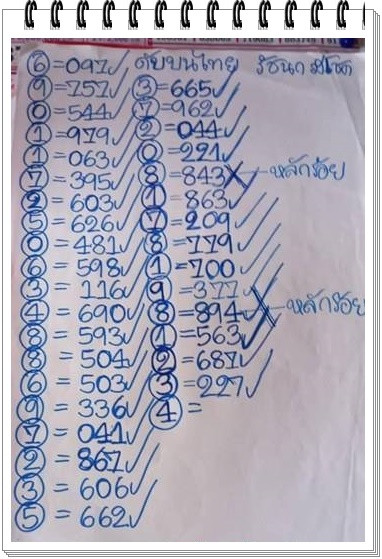 6 =097✓ ดับบนไทย
9 =757✓ 3 =665✓
0 =544✓ 7 =962✓
1 =979✓ 2 =044✓
1 =063✓ 0 =221✓
7 =395✓ 8 =843✗ หลักร้อย
2 =603✓ 1 =863✓
5 =626✓ 7 =209✓
0 =481✓ 8 =779✓
6 =598✓ 1 =700✓
3 = 116✓ 9 =377✓
4 =690✓ 8 =894✗ หลักร้อย
8 =593✓ 1 =563✓
8 = 504✓ 2 =687✓
6 = 503✓ 3 =227✓
9 = 336✓ 4 =
7 = 041✓
2 = 867✓
3 = 606✓
5 = 662✓